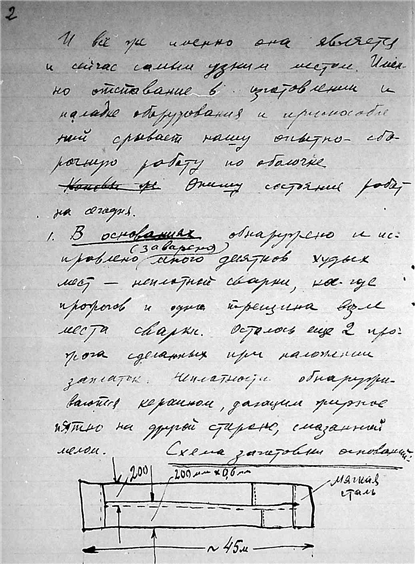 2
И всё же именно она является
и сейчас самым узким местом. Имен-
но отставание в изготовлении и
наладке оборудования и приспособле-
ний срывает нашу опытно-сбо-
рочную работу по оболочке
Опишу состояние работ
на сегодня.
1. В основаниях обнаружено и ис-
правлено (заварено) много десятков худых
мест — неплотной сварки, кое-где
прожогов и одна трещина возле
места сварки. Осталось еще 2 про-
жога сделанных при наложении
заплаток. Неплотности обнаружи-
ваются керосином, дающим жирное
пятно на другой стороне, смазанной
мелом.
Схема заготовки оснований
200
200мм х 0,6мм
мягкая
сталь
~ 45м